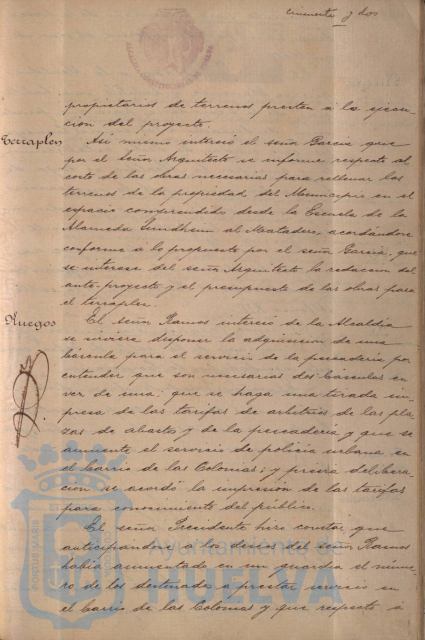 cincuenta y dos
propietarios de terrenos presten a la ejecu-
cion del proyecto.
Terraplen
Asi mismo interesó el señor Garcia que
por el Señor Arquitecto se informe respecto al
coste de las obras necesarias para rellenar los
terrenos de la propiedad del Municipio en el
espacio comprendido desde la Escuela de la
Alameda Sundheim al Matadero, acordándose
conforme á lo propuesto por el señor Garcia, que
se interese del señor Arquitecto la redaccion del
ante-proyecto y el presupuesto de las obras para
el terraplen.
Ruegos
El señor Ramos interesó de la Alcaldia
se sirviera disponer la adquisicion de una
báscula para el servicio de la pescaderia por
entender que son necesarias dos básculas en
vez de una; que se haga una tirada im-
presa de las tarifas de arbitrios de las pla-
zas de abastos y de la pescaderia y que se
aumente el servicio de policia urbana en
el barrio de las Colonias; y previa delibera-
cion se acordó la impresion de las tarifas
para conocimiento del público.
El señor Presidente hizo constar que
anticipandose a los deseos del señor Ramos
habia aumentado en un guardia el núme-
ro de los destinados a prestar servicio en
el barrio de las Colonias y que respecto á
Ayuntamiento de
HUELVA
PORTUS MARIS